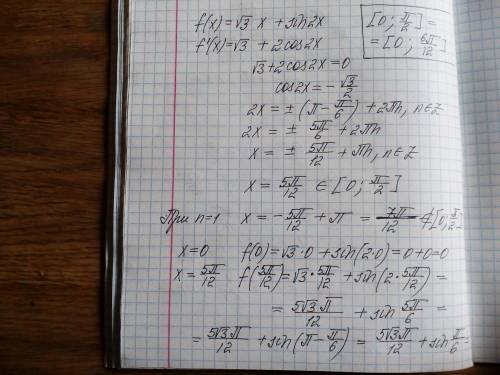 f(x)=√3 x + sin2x
f'(x)=√3 + 2cos2x
[0; π/2] =
= [0; 6π/12]
√3+2cos2x=0
cos2x = -√3/2
2x = ± (π - π/6) + 2πn, n∈Z
2x = ± 5π/6 + 2πn
x = ± 5π/12 + πn, n∈Z
x = 5π/12 ∈ [0; π/2]
При n=1 x = -5π/12 + π = 7π/12 ∉ [0; π/2]
x=0 f(0)=√3·0 + sin(2·0)=0+0=0
x= 5π/12 f(5π/12)=√3· 5π/12 + sin(2· 5π/12) =
= 5√3π/12 + sin 5π/6 =
= 5√3π/12 + sin(π - π/6) = 5√3π/12 + sin π/6 =